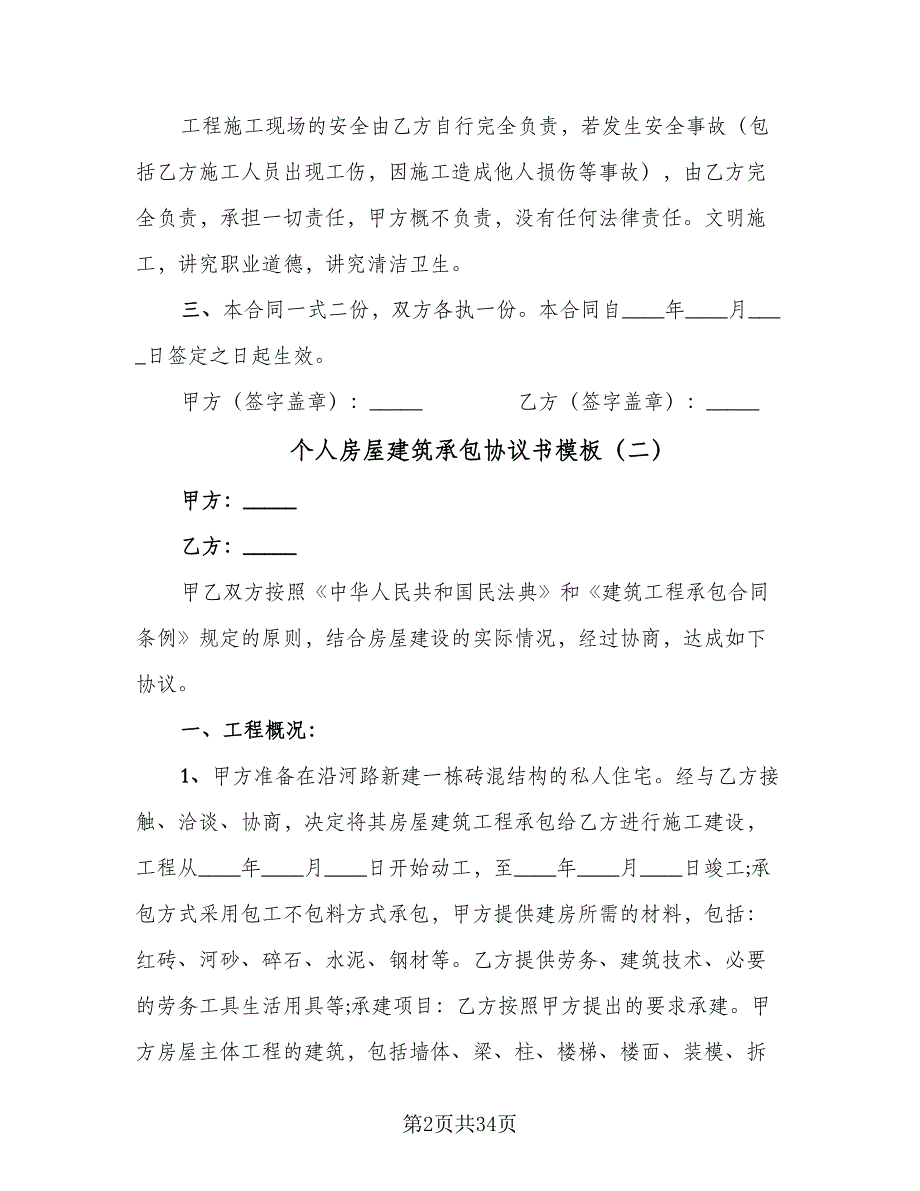 工程施工现场的安全由乙方自行完全负责，若发生安全事故（包
括乙方施工人员出现工伤，因施工造成他人损伤等事故），由乙方完
全负责，承担一切责任，甲方概不负责，没有任何法律责任。文明施
工，讲究职业道德，讲究清洁卫生。
三、本合同一式二份，双方各执一份。本合同自____年____月___
_日签定之日起生效。
甲方（签字盖章）：_____ 乙方（签字盖章）：_____
个人房屋建筑承包协议书模板（二）
甲方：_____
乙方：_____
甲乙双方按照《中华人民共和国民法典》和《建筑工程承包合同
条例》规定的原则，结合房屋建设的实际情况，经过协商，达成如下
协议。
一、工程概况：
1、甲方准备在沿河路新建一栋砖混结构的私人住宅。经与乙方接
触、洽谈、协商，决定将其房屋建筑工程承包给乙方进行施工建设，
工程从____年____月____日开始动工，至____年____月____日竣工;承
包方式采用包工不包料方式承包，甲方提供建房所需的材料，包括：
红砖、河砂、碎石、水泥、钢材等。乙方提供劳务、建筑技术、必要
的劳务工具生活用具等;承建项目：乙方按照甲方提出的要求承建。甲
方房屋主体工程的建筑，包括墙体、梁、柱、楼梯、楼面、装模、拆
第2页共34页